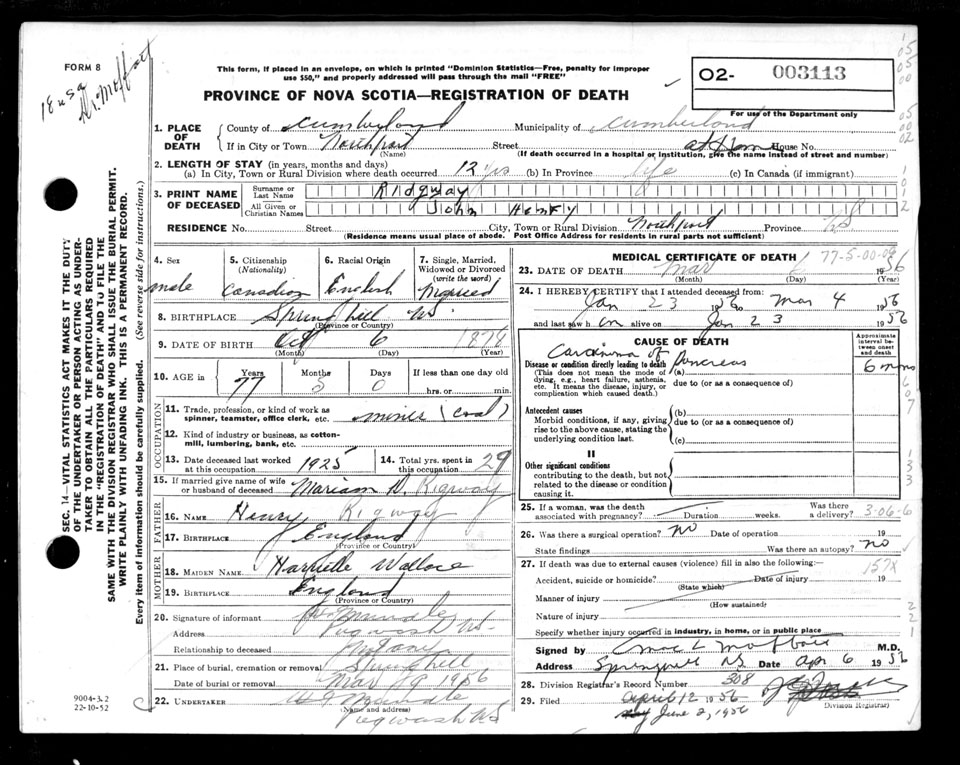 FORM 8
18 usa
Dr. Moffatt
This form, if placed in an envelope, on which is printed "Dominion Statistics—Free, penalty for improper
use $50," and properly addressed will pass through the mail "FREE"
PROVINCE OF NOVA SCOTIA—REGISTRATION OF DEATH
02- 003113
For use of the Department only
1. PLACE OF DEATH
County of Cumberland Municipality of Cumberland
If in City or Town Northport Street at Home House No.
(Name) (If death occurred in a hospital or institution, give the name instead of street and number)
2. LENGTH OF STAY (in years, months and days)
(a) In City, Town or Rural Division where death occurred 12 yrs (b) In Province life (c) In Canada (if immigrant)
3. PRINT NAME OF DECEASED
Surname or Last Name Ridgway
All Given or Christian Names John Henry
RESIDENCE No. Street City, Town or Rural Division Northport Province NS
(Residence means usual place of abode. Post Office Address for residents in rural parts not sufficient)
4. Sex male
5. Citizenship (Nationality) Canadian
6. Racial Origin English
7. Single, Married, Widowed or Divorced (write the word) Married
8. BIRTHPLACE Spring hill NS.
(Province or Country)
9. DATE OF BIRTH Oct 6 1878
(Month) (Day) (Year)
10. AGE in Years 77 Months 5 Days 0 If less than one day old
hrs. or min.
OCCUPATION
11. Trade, profession, or kind of work as spinner, teamster, office clerk, etc. miner (coal)
12. Kind of industry or business, as cotton-mill, lumbering, bank, etc.
13. Date deceased last worked at this occupation 1925
14. Total yrs. spent in this occupation 29
15. If married give name of wife or husband of deceased Mariam D. Rigway
FATHER
16. NAME Henry Rigway
17. BIRTHPLACE England
(Province or Country)
MOTHER
18. MAIDEN NAME Harriette Wallace
19. BIRTHPLACE England
(Province or Country)
20. Signature of informant
Address Pugwash NS.
Relationship to deceased
21. Place of burial, cremation or removal Springhill
Date of burial or removal Mar 9 1956
22. UNDERTAKER
(Name and address)
Pugwash NS
MEDICAL CERTIFICATE OF DEATH 77-5-00-09
23. DATE OF DEATH Mar 6 1956
(Month) (Day) (Year)
24. I HEREBY CERTIFY that I attended deceased from:
Jan 23 1956 Mar 4 1956
and last saw h im alive on Jan 23 1956
CAUSE OF DEATH
Approximate interval between onset and death
I
Disease or condition directly leading to death
(This does not mean the mode of dying, e.g., heart failure, asthenia, etc. It means the disease, injury, or complication which caused death.)
(a) Carcinoma of Pancreas 6 mons
due to (or as a consequence of)
Antecedent causes
Morbid conditions, if any, giving rise to the above cause, stating the underlying condition last.
(b)
due to (or as a consequence of)
(c)
II
Other significant conditions
contributing to the death, but not related to the disease or condition causing it.
25. If a woman, was the death associated with pregnancy? Duration weeks. Was there a delivery? 3-06-6
26. Was there a surgical operation? no Date of operation 19
State findings Was there an autopsy? no
27. If death was due to external causes (violence) fill in also the following:— 157X
Accident, suicide or homicide? Date of injury 19
(State which)
Manner of injury
(How sustained)
Nature of injury
Specify whether injury occurred in industry, in home, or in public place
Signed by M.D.
Address Springhill NS Date Apr 6 1956
28. Division Registrar's Record Number 308
29. Filed April 12 1956
Division Registrar)
June 2, 1956
SEC. 14—VITAL STATISTICS ACT MAKES IT THE DUTY
OF THE UNDERTAKER OR PERSON ACTING AS UNDER-
TAKER TO OBTAIN ALL THE PARTICULARS REQUIRED
IN THE "REGISTRATION OF DEATH" AND TO FILE THE
SAME WITH THE DIVISION REGISTRAR WHO SHALL ISSUE THE BURIAL PERMIT.
WRITE PLAINLY WITH UNFADING INK. THIS IS A PERMANENT RECORD.
Every item of information should be carefully supplied. (See reverse side for instructions.)
9004-3.2
22-10-52